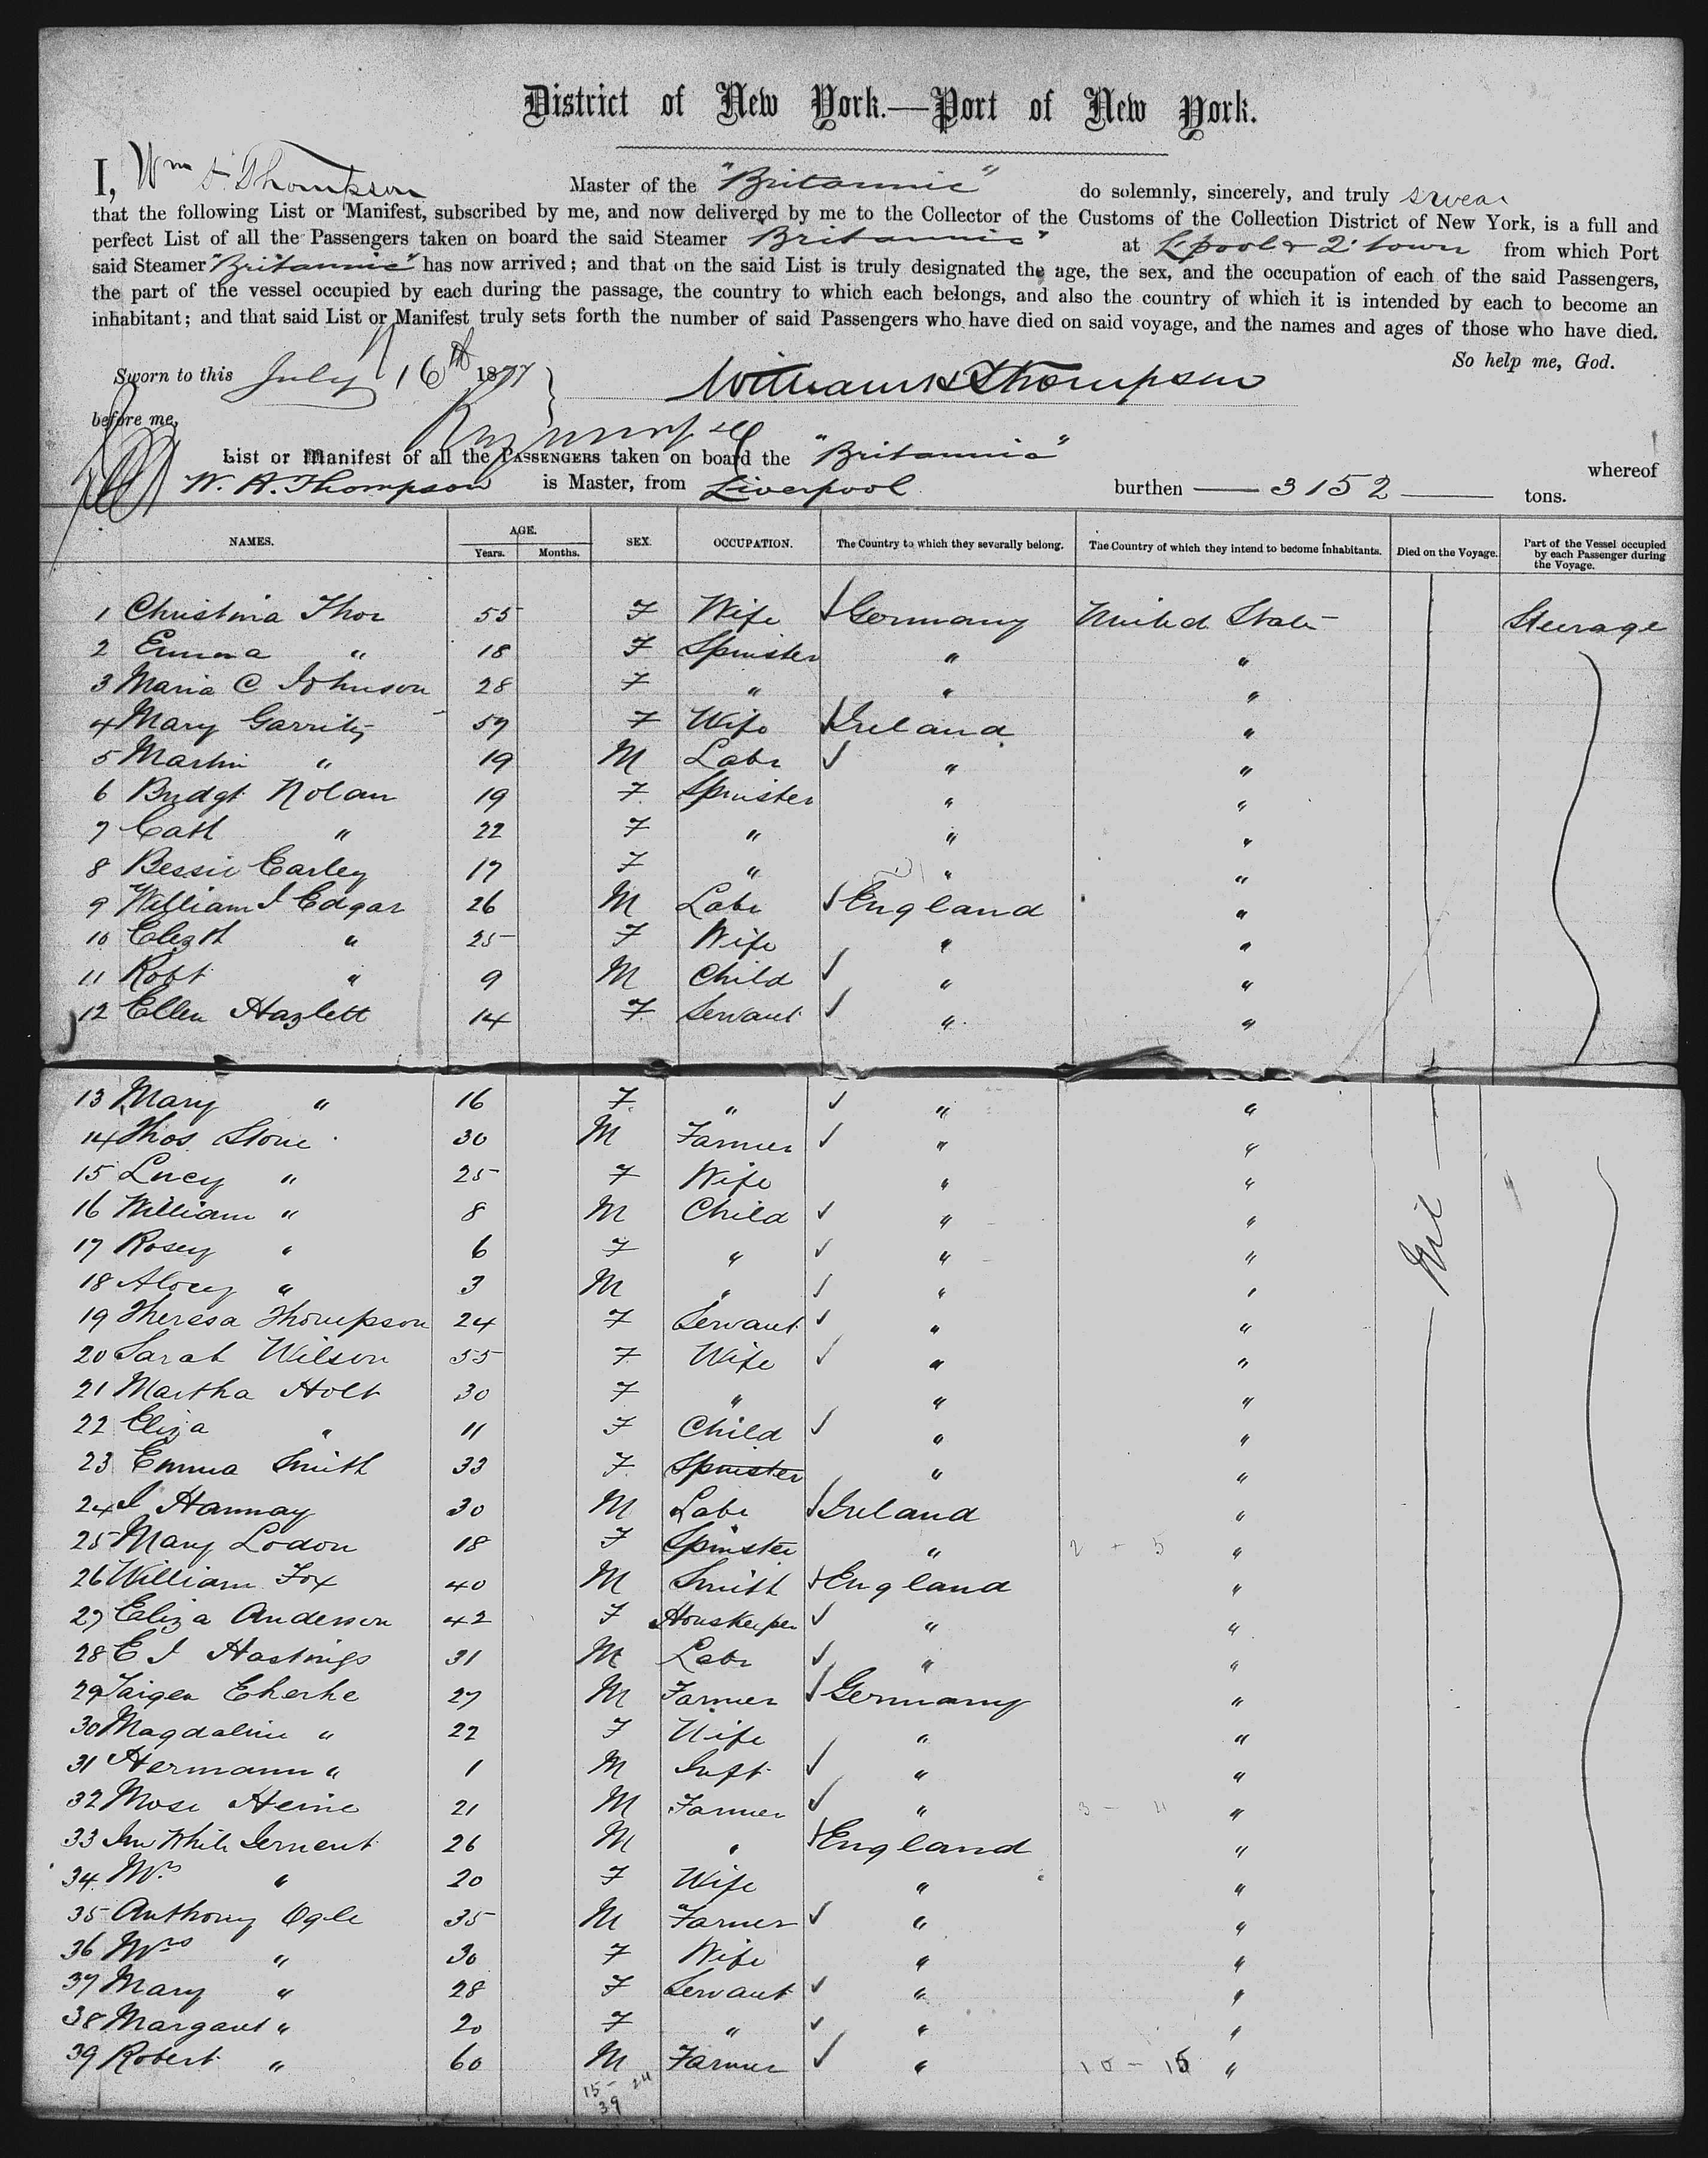 District of New York.—Port of New York.
I, Wm H Thompson Master of the "Britannic" do solemnly, sincerely, and truly swear
that the following List or Manifest, subscribed by me, and now delivered by me to the Collector of the Customs of the Collection District of New York, is a full and
perfect List of all the Passengers taken on board the said Steamer Britannic" at L'pool & Q'town from which Port
said Steamer "Britannic" has now arrived; and that on the said List is truly designated the age, the sex, and the occupation of each of the said Passengers,
the part of the vessel occupied by each during the passage, the country to which each belongs, and also the country of which it is intended by each to become an
inhabitant; and that said List or Manifest truly sets forth the number of said Passengers who have died on said voyage, and the names and ages of those who have died.
So help me, God.
Sworn to this July 16th 1877 William H Thompson
before me,
List or Manifest of all the PASSENGERS taken on board the "Britannic" whereof
W. H. Thompson is Master, from Liverpool burthen — 3152 — tons.
NAMES. AGE. Years. Months. SEX. OCCUPATION. The Country to which they severally belong. The Country of which they intend to become Inhabitants. Died on the Voyage. Part of the Vessel occupied by each Passenger during the Voyage.
1 Christina Thor 55 F Wife Germany United State Steerage
2 Emma " 18 F Spinster " "
3 Maria C Johnson 28 F " " "
4 Mary Garrity 59 F Wife Ireland "
5 Martin " 19 M Labr " "
6 Bridgt Nolan 19 F Spinster " "
7 Cath " 22 F " " "
8 Bessie Earley 17 F " " "
9 William J Edgar 26 M Labr England "
10 Elizth " 25 F Wife " "
11 Robt " 9 M Child " "
12 Ellen Hazlett 14 F Servant " "
13 Mary " 16 F " " "
14 Thos Stone 30 M Farmer " "
15 Lucy " 25 F Wife " "
16 William " 8 M Child " "
17 Rosey " 6 F " " "
18 " 3 M " " "
19 Theresa Thompson 24 F Servant " "
20 Sarah Wilson 55 F Wife " "
21 Martha Holt 30 F " " "
22 Eliza " 11 F Child " "
23 Emma Smith 33 F Spinster " "
24 J Hannay 30 M Labr Ireland "
25 Mary Lodon 18 F Spinster " 2 + 5 "
26 William Fox 40 M Smith England "
27 Eliza Anderson 42 F Houskeeper " "
28 E J Hastings 31 M Labr " "
29 Eherke 27 M Farmer Germany "
30 Magdaline " 22 F Wife " "
31 Hermann " 1 M Inft " "
32 Mose Heine 21 M Farmer " 3 - 11 "
33 Jno White 26 M " England "
34 Mrs " 20 F Wife " "
35 Anthony Ogle 35 M Farmer " "
36 Mrs " 30 F Wife " "
37 Mary " 28 F Servant " "
38 Margaret " 20 F " " "
39 Robert " 60 M Farmer " 10 - 15 "
Nil
15 - 24
39